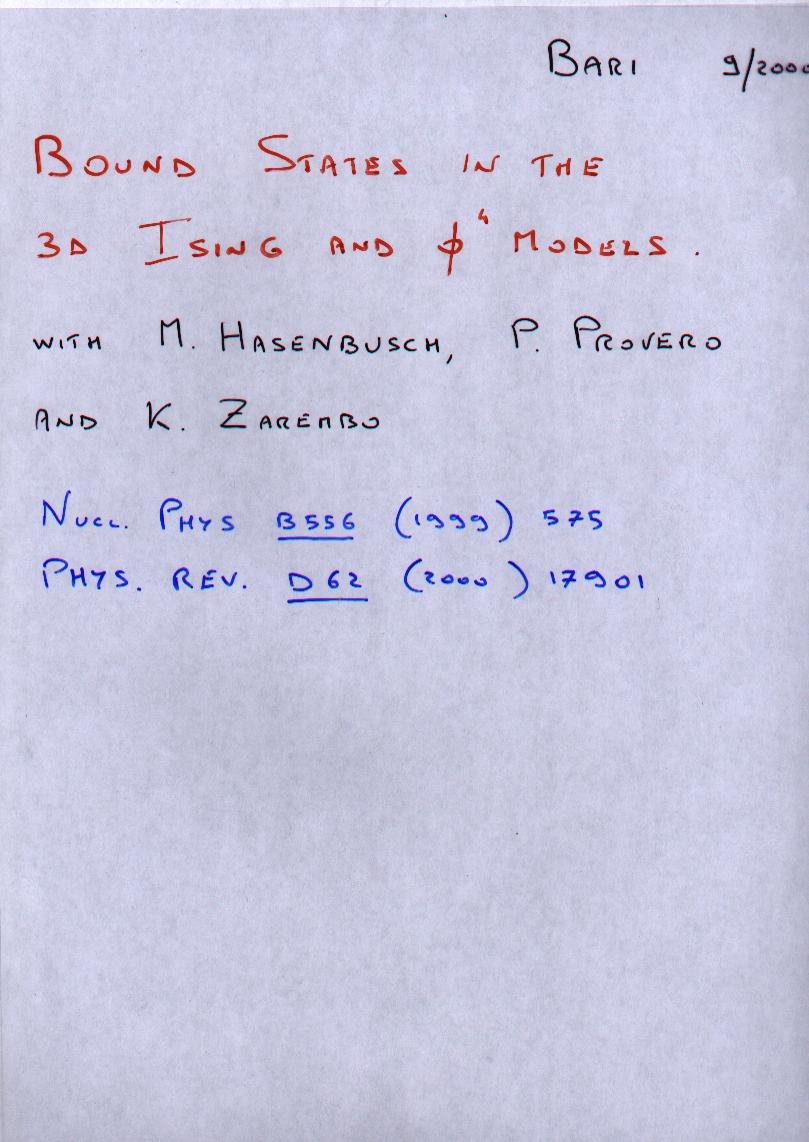 BARI 9/2000
BOUND STATES IN THE
3D ISING AND ϕ⁴ MODELS.
WITH M. HASENBUSCH, P. PROVERO
AND K. ZAREMBO
NUCL. PHYS B556 (1999) 575
PHYS. REV. D62 (2000) 17901